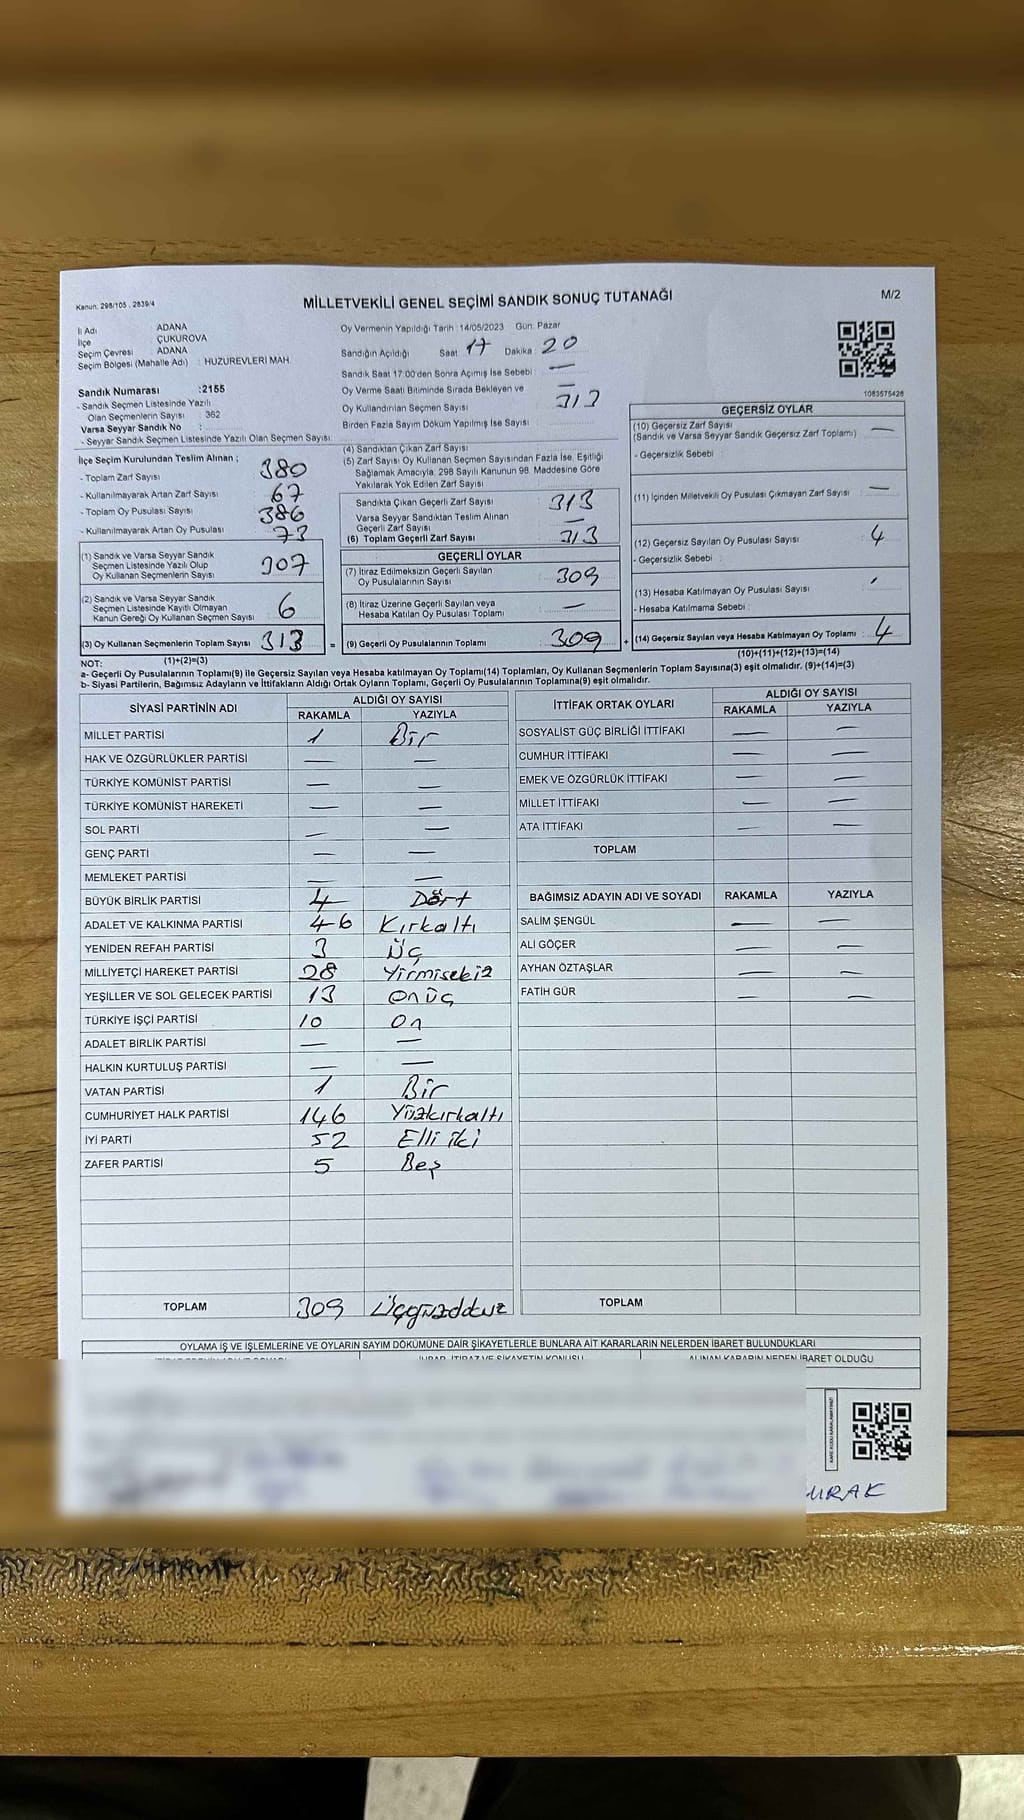 Kanun: 298/105 , 2839/4
MİLLETVEKİLİ GENEL SEÇİMİ SANDIK SONUÇ TUTANAĞI
M/2
İl Adı ADANA
İlçe ÇUKUROVA
Seçim Çevresi ADANA
Seçim Bölgesi (Mahalle Adı) : HUZUREVLERİ MAH.
Sandık Numarası :2155
- Sandık Seçmen Listesinde Yazılı
Olan Seçmenlerin Sayısı : 362
Varsa Seyyar Sandık No :
- Seyyar Sandık Seçmen Listesinde Yazılı Olan Seçmen Sayısı:
Oy Vermenin Yapıldığı Tarih :14/05/2023 Gün: Pazar
Sandığın Açıldığı Saat: 17 Dakika: 20
Sandık Saat 17:00'den Sonra Açımış İse Sebebi : —
Oy Verme Saati Bitiminde Sırada Bekleyen ve —
Oy Kullandırılan Seçmen Sayısı 313
Birden Fazla Sayım Döküm Yapılmış İse Sayısı :
1083575426
İlçe Seçim Kurulundan Teslim Alınan ;
- Toplam Zarf Sayısı : 380
- Kullanılmayarak Artan Zarf Sayısı : 67
- Toplam Oy Pusulası Sayısı : 386
- Kullanılmayarak Artan Oy Pusulası : 73
(1) Sandık ve Varsa Seyyar Sandık
Seçmen Listesinde Yazılı Olup
Oy Kullanan Seçmenlerin Sayısı 307
(2) Sandık ve Varsa Seyyar Sandık
Seçmen Listesinde Kayıtlı Olmayan
Kanun Gereği Oy Kullanan Seçmen Sayısı 6
(3) Oy Kullanan Seçmenlerin Toplam Sayısı 313
(1)+(2)=(3)
(4) Sandıktan Çıkan Zarf Sayısı
(5) Zarf Sayısı Oy Kullanan Seçmen Sayısından Fazla İse, Eşitliği
Sağlamak Amacıyla, 298 Sayılı Kanunun 98. Maddesine Göre
Yakılarak Yok Edilen Zarf Sayısı :
Sandıkta Çıkan Geçerli Zarf Sayısı 313
Varsa Seyyar Sandıktan Teslim Alınan
Geçerli Zarf Sayısı —
(6) Toplam Geçerli Zarf Sayısı 313
GEÇERLİ OYLAR
(7) İtiraz Edilmeksizin Geçerli Sayılan
Oy Pusulalarının Sayısı 309
(8) İtiraz Üzerine Geçerli Sayılan veya
Hesaba Katılan Oy Pusulası Toplamı —
= (9) Geçerli Oy Pusulalarının Toplamı 309 +
GEÇERSİZ OYLAR
(10) Geçersiz Zarf Sayısı
(Sandık ve Varsa Seyyar Sandık Geçersiz Zarf Toplamı) —
- Geçersizlik Sebebi :
(11) İçinden Milletvekili Oy Pusulası Çıkmayan Zarf Sayısı —
(12) Geçersiz Sayılan Oy Pusulası Sayısı 4
- Geçersizlik Sebebi :
(13) Hesaba Katılmayan Oy Pusulası Sayısı
- Hesaba Katılmama Sebebi :
(14) Geçersiz Sayılan veya Hesaba Katılmayan Oy Toplamı 4
(10)+(11)+(12)+(13)=(14)
NOT:
a- Geçerli Oy Pusulalarının Toplamı(9) ile Geçersiz Sayılan veya Hesaba katılmayan Oy Toplamı(14) Toplamları, Oy Kullanan Seçmenlerin Toplam Sayısına(3) eşit olmalıdır. (9)+(14)=(3)
b- Siyasi Partilerin, Bağımsız Adayların ve İttifakların Aldığı Ortak Oyların Toplamı, Geçerli Oy Pusulalarının Toplamına(9) eşit olmalıdır.
SİYASİ PARTİNİN ADI ALDIĞI OY SAYISI
RAKAMLA YAZIYLA
MİLLET PARTİSİ 1 Bir
HAK VE ÖZGÜRLÜKLER PARTİSİ — —
TÜRKİYE KOMÜNİST PARTİSİ — —
TÜRKİYE KOMÜNİST HAREKETİ — —
SOL PARTİ — —
GENÇ PARTİ — —
MEMLEKET PARTİSİ — —
BÜYÜK BİRLİK PARTİSİ 4 Dört
ADALET VE KALKINMA PARTİSİ 46 Kırkaltı
YENİDEN REFAH PARTİSİ 3 Üç
MİLLİYETÇİ HAREKET PARTİSİ 28 Yirmisekiz
YEŞİLLER VE SOL GELECEK PARTİSİ 13 Onüç
TÜRKİYE İŞÇİ PARTİSİ 10 On
ADALET BİRLİK PARTİSİ — —
HALKIN KURTULUŞ PARTİSİ — —
VATAN PARTİSİ 1 Bir
CUMHURİYET HALK PARTİSİ 146 Yüzkırkaltı
İYİ PARTİ 52 Elli iki
ZAFER PARTİSİ 5 Beş
TOPLAM 309
İTTİFAK ORTAK OYLARI ALDIĞI OY SAYISI
RAKAMLA YAZIYLA
SOSYALİST GÜÇ BİRLİĞİ İTTİFAKI — —
CUMHUR İTTİFAKI — —
EMEK VE ÖZGÜRLÜK İTTİFAKI — —
MİLLET İTTİFAKI — —
ATA İTTİFAKI — —
TOPLAM
BAĞIMSIZ ADAYIN ADI VE SOYADI RAKAMLA YAZIYLA
SALİM ŞENGÜL — —
ALİ GÖÇER — —
AYHAN ÖZTAŞLAR — —
FATİH GÜR — —
TOPLAM
OYLAMA İŞ VE İŞLEMLERİNE VE OYLARIN SAYIM DÖKÜMÜNE DAİR ŞİKAYETLERLE BUNLARA AİT KARARLARIN NELERDEN İBARET BULUNDUKLARI
ALINAN KARARIN NEDEN İBARET OLDUĞU
KARE KODU KARALAMAYINIZ!